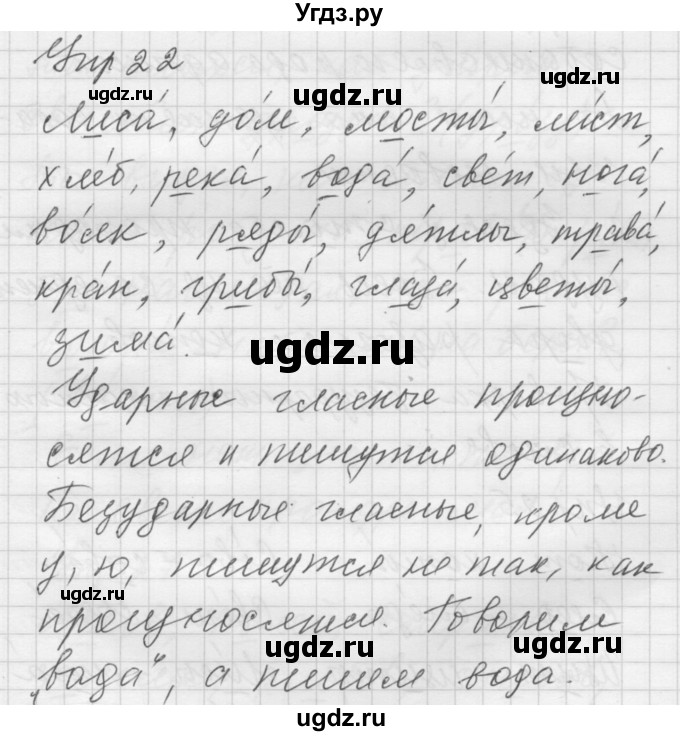 Угдз.ру
Упр 22
ugdz.ru
ugdz.ru
ugdz.ru
Лиса́, до́м, мосты́, ли́ст,
хле́б, река́, вода́, све́т, нога́,
во́лк, ряды́, дя́тлы, трава́,
кра́н, грибы́, глаза́, цветы́,
зима́.
ugdz.ru
Ударные гласные произно-
сятся и пишутся одинаково.
Безударные гласные, кроме
у, ю, пишутся не так, как
ugdz.ru
произносятся. Говорим
ugdz.ru
ugdz.ru
„вада“, а пишем вода.
ugdz.ru